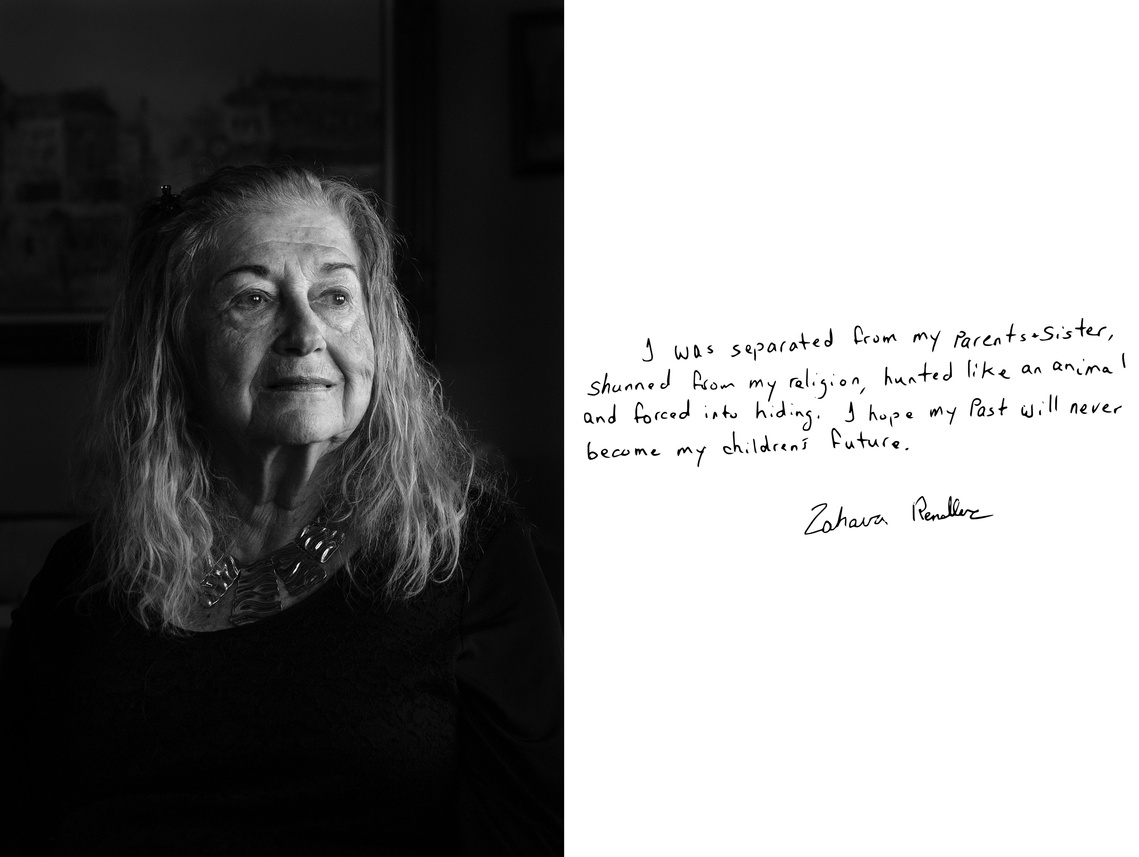 I was separated from my Parents + Sister,
shunned from my religion, hunted like an animal
and forced into hiding. I hope my Past will never
become my children's future.
Zahava Rendler